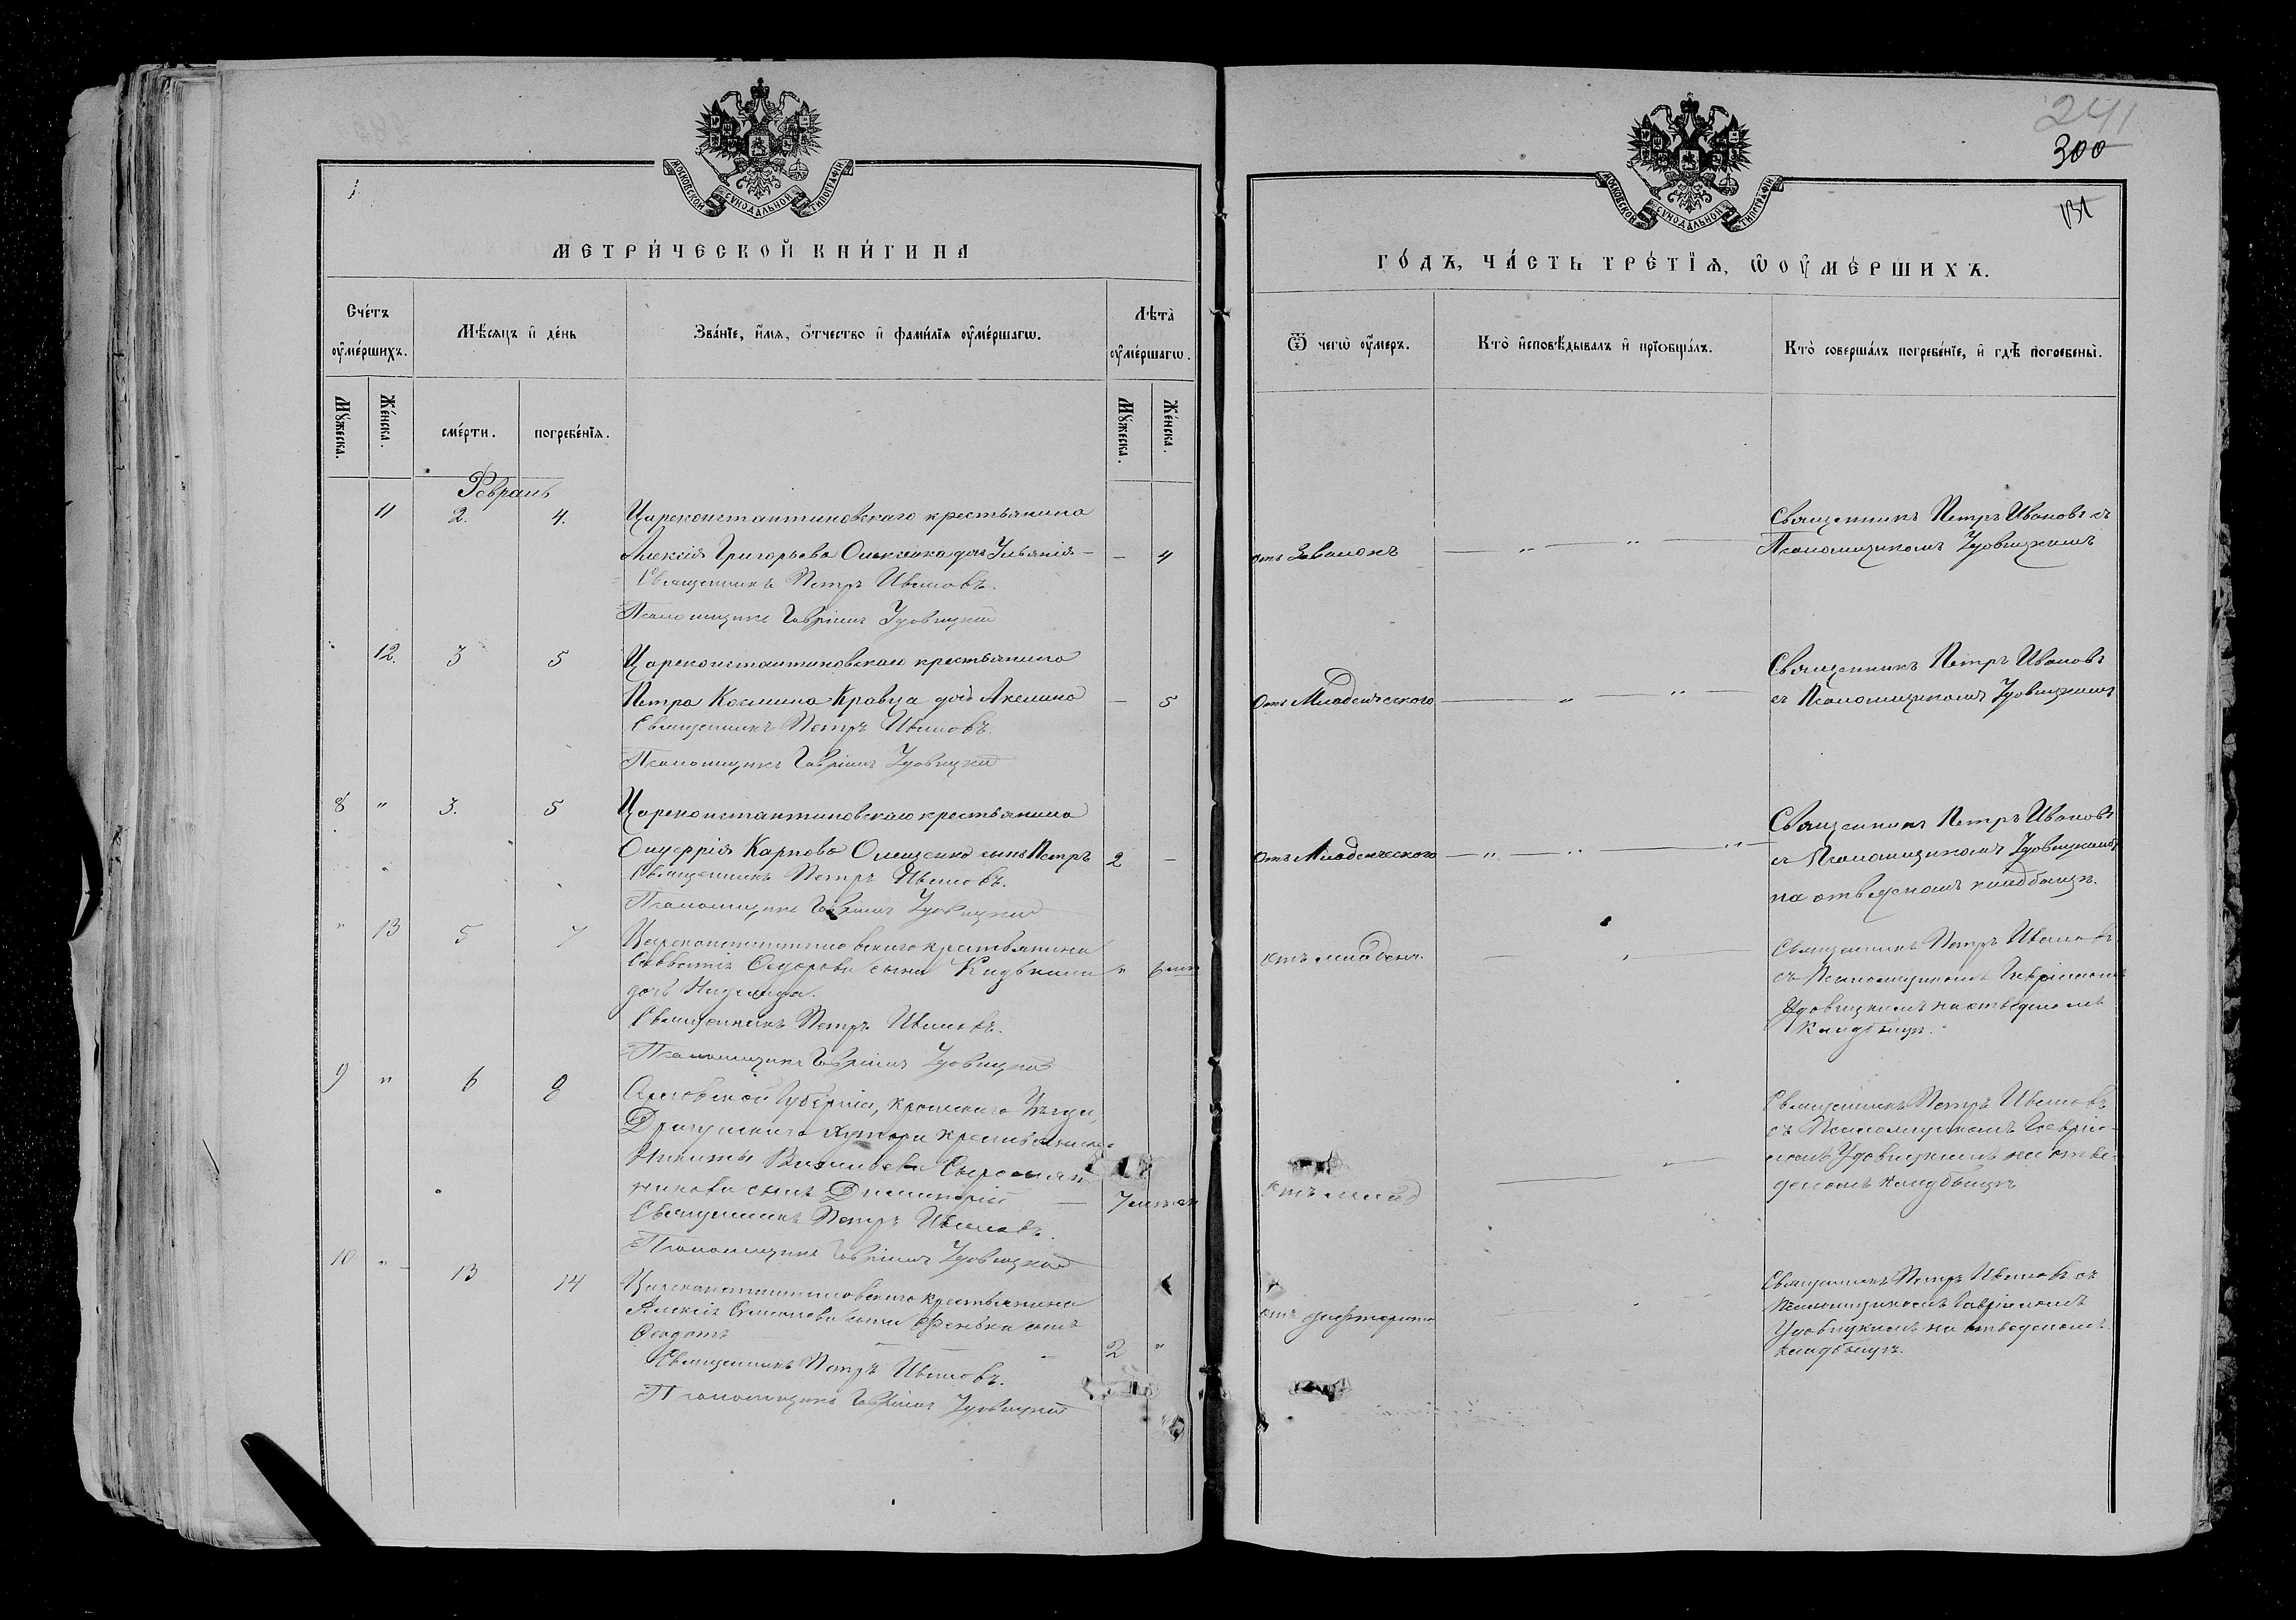 МОСКОВСКОЙ СѴНОДАЛЬНОЙ ТИПОГРАФІИ
МЕТРИ́ЧЕСКОЙ КНИ́ГИ НА
Сче́тъ ᲂу҆ме́ршихъ.
Мѣ́сяцъ и҆ де́нь
Зва́нїе, и҆́мя, ѻ҆́тчество и҆ фами́лїя ᲂу҆ме́ршагѡ.
Лѣта̀ ᲂу҆ме́ршагѡ.
Мꙋ́жеска.
Же́нска.
сме́рти.
погребе́нїя.
Мꙋ́жеска.
Же́нска.
Февраль
11 2. 4. Цареконстантиновскаго крестьянина
Алексія Григорьева дочь Ульянія — — 4
Священникъ Петръ Ивановъ.
Псаломщикъ Гавріилъ Удовицкій
12. 3 5 Цареконстантиновскаго крестьянина
Петра Космина Кравца дочь Акелина — 5
Священникъ Петръ Ивановъ.
Псаломщикъ Гавріилъ Удовицкій
8 " 3. 5 Цареконстантиновскаго крестьянина
Онуфрія Карпова Онищенко сынъ Петръ 2 —
Священникъ Петръ Ивановъ.
Псаломщикъ Гавріилъ Удовицкій
" 13 5 7 Цареконстантиновскаго крестьянина
Савватія Федорова сына "
дочь Надежда.
Священникъ Петръ Ивановъ.
Псаломщикъ Гавріилъ Удовицкій
9 " 6 8 Орловской Губерніи, Кромскаго Уѣзда,
хутора крестьянина
Никиты Васильева
сынъ Димитрій —
Священникъ Петръ Ивановъ.
Псаломщикъ Гавріилъ Удовицкій
10 " 13 14 Цареконстантиновскаго крестьянина
Алексія сына сынъ
Феодотъ 2 "
Священникъ Петръ Ивановъ.
Псаломщикъ Гавріилъ Удовицкій
241
300
131
МОСКОВСКОЙ СѴНОДАЛЬНОЙ ТИПОГРАФІИ
ГО́ДЪ, ЧА́СТЬ ТРЕ́ТЇЯ, Ѡ҆ ОУ҆МЕ́РШИХЪ.
Ѿ чегѡ̀ ᲂу҆́меръ.
Кто̀ и҆сповѣ́дывалъ и҆ прїѡбща́лъ.
Кто̀ соверша́лъ погребе́нїе, и҆ гдѣ̀ погребены̀.
Священникъ Петръ Ивановъ съ
отъ — " — " — Псаломщикомъ Удовицкимъ
Священникъ Петръ Ивановъ
Отъ Младенческого — " — " — съ Псаломщикомъ Удовицкимъ
Священникъ Петръ Ивановъ
Отъ Младенческого — " — " — " съ Псаломщикомъ Удовицкимъ
на отведеномъ кладбищѣ.
Священникъ Петръ Ивановъ
отъ младенч. — съ Псаломщикомъ Гавріиломъ
Удовицкимъ на отведеномъ
кладбищѣ.
Священникъ Петръ Ивановъ
съ Псаломщикомъ Гаврiи-
ломъ Удовицкимъ на отве-
отъ млад — деномъ кладбищѣ
Священникъ Петръ Ивановъ съ
отъ дифтерита Псаломщикомъ Гавріиломъ
Удовицкимъ на отведеномъ
кладбищѣ.